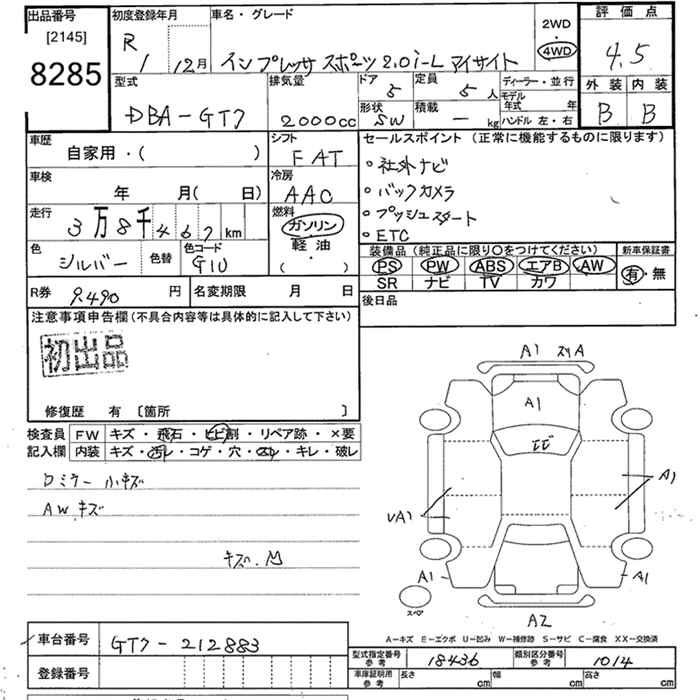 出品番号 [2145] 8285
初度登録年月 R 1 12月
車名・グレード インプレッサ スポーツ 2.0i-L アイサイト
2WD 4WD
評価点 4.5
外装 内装
B B
型式 DBA-GT7
排気量 2000cc
ドア 5 定員 5人
ディーラー・並行
形状 SW 積載 ー kg
モデル年式 年
ハンドル 左・右
車歴 自家用・( )
シフト FAT
車検 年 月( 日)
冷房 AAC
走行 3万8千467km
燃料 ガソリン 軽油 ( ・ )
色 シルバー 色替 色コード G1U
セールスポイント (正常に機能するものに限ります)
・社外ナビ
・バックカメラ
・プッシュスタート
・ETC
装備品 (純正品に限り〇をつけてください) 新車保証書
PS PW ABS エアB AW 有・無
SR ナビ TV カワ
R券 9,490円 名変期限 月 日
後日品
注意事項申告欄(不具合内容等は具体的に記入して下さい)
初出品
修復歴 有 〔箇所 〕
検査員 FW キズ・飛石・ヒビ割・リペア跡・×要
記入欄 内装 キズ・汚レ・コゲ・穴・スレ・キレ・破レ
ロミラー 小キズ
AW キズ
キズ.凹
A1 スリA
A1
ヒビ
A1
UA1
A1
A1
スペア
A2
A-キズ E-エクボ U-凹み W-補修跡 S-サビ C-腐食 XX-交換済
車台番号 GT7-212883
登録番号
型式指定番号 参考 18436 類別区分番号 参考 1014
車庫証明用 参考 長さ cm 幅 cm 高さ cm